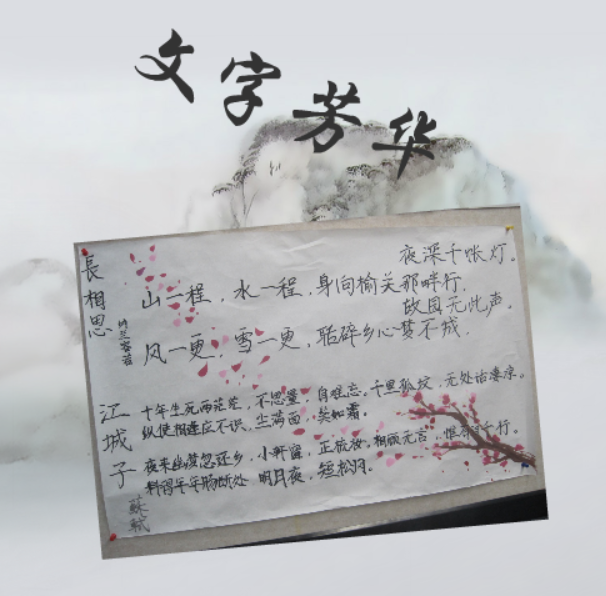 文字芳华
長相思
纳兰容若
夜深千帐灯。
山一程,水一程,身向榆关那畔行,
故园无此声。
风一更,雪一更,聒碎乡心梦不成.
江城子
蘇軾
十年生死两茫茫,不思量,自难忘。千里孤坟,无处话凄凉。
纵使相逢应不识,尘满面,鬓如霜。
夜来幽梦忽还乡,小轩窗,正梳妆。相顾无言,惟 千行。
料得年年肠断处,明月夜,短松冈。